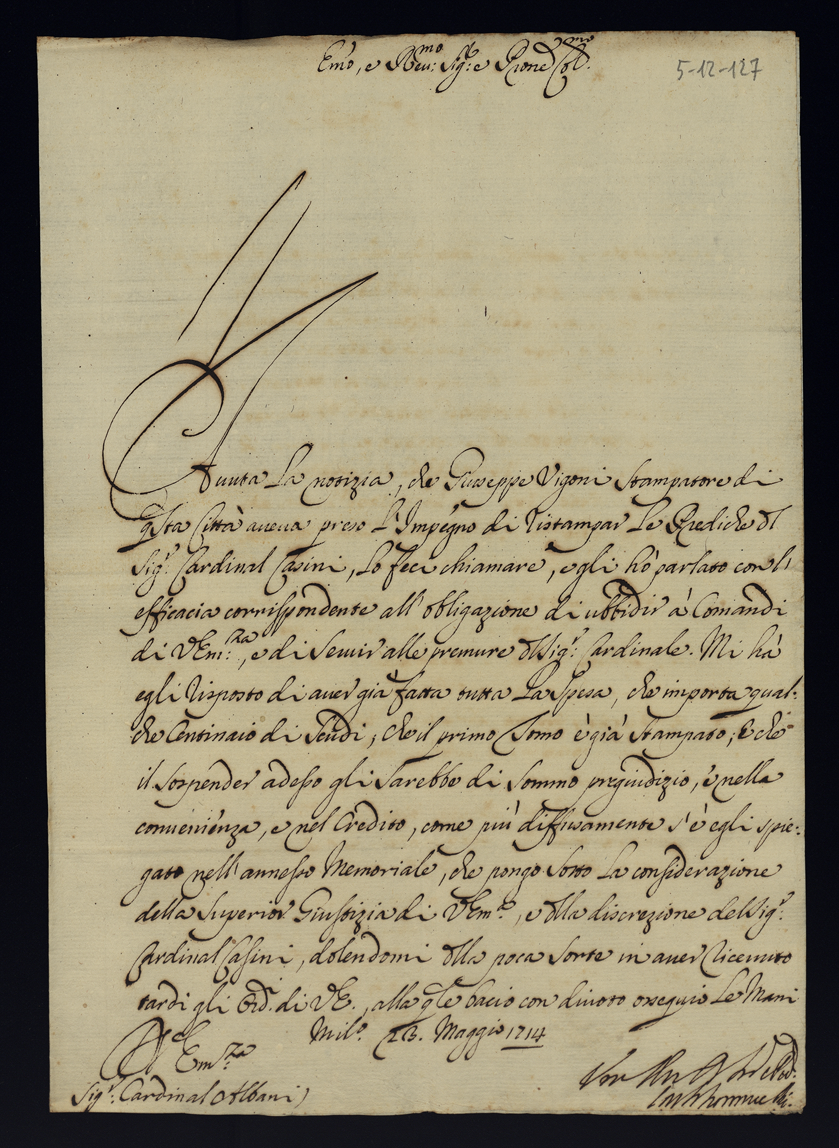 Emo, e Reu:mo Sig:e e Prone Col:mo
5-12-127
Auuta La notizia, che Giuseppe Vigoni Stampatore di
qsta Città aueua preso L'Impegno di ristampar Le Prediche dl
Sig.r Cardinal Casini, Lo feci chiamare, e gli hò parlato con l'
efficacia corrispondente all'obligazione di ubbidir à Comandi
di VEm:za, e di Seruir alle premure dl Sig.r Cardinale. Mi hà
egli risposto di auer già fatta tutta La Spesa, che importa qual-
che Centinaio di Scudi, che il primo Tomo è già Stampato, e che
il Sospender adesso gli Sarebbe di Sommo pregiudizio, e nella
conuenienza, e nel Credito, come più diffusamente s'è egli spie-
gato nell'annesso Memoriale, che pongo Sotto La considerazione
della Superior Giustizia di VEm.a, e dlla discrezione del Sig.r
Cardinal Casini, dolendomi dlla poca Sorte in auer riceuuto
tardi gli Ord.i di VE., alla qle bacio con diuoto ossequio Le Mani
Mil.o 23. Maggio 1714
Em.za
Sig.r Cardinal Albani